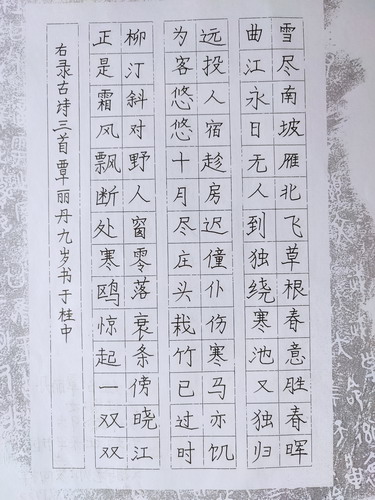 雪尽南坡雁北飞草根春意胜春晖
曲江永日无人到独绕寒池又独归
远投人宿趁房迟僮仆伤寒马亦饥
为客悠悠十月尽庄头栽竹已过时
柳汀斜对野人窗零落衰条傍晓江
正是霜风飘断处寒鸥惊起一双双
右录古诗三首覃丽丹九岁书于桂中